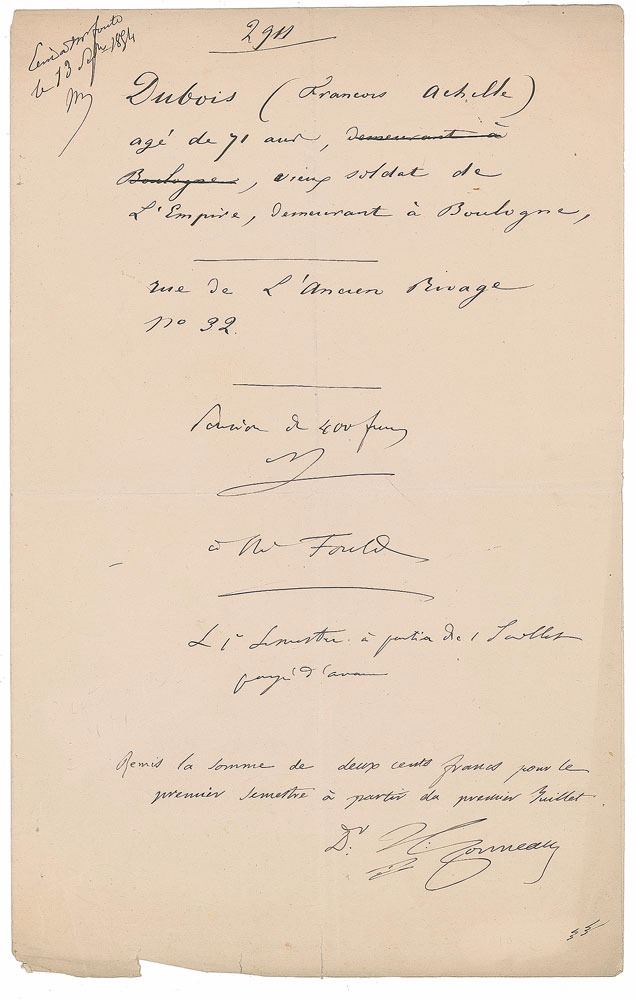 2911
le 13 1854
Dubois (Francois Achille)
agé de 71 ans, demeurant à
Boulogne, vieux soldat de
L'Empire, demeurant à Boulogne,
rue de L'Ancien Rivage
no 32.
Pension de 400 francs
N
à Mr Fould
Le 1er Semestre à partir du 1 Juillet
payé d'avance
Remis la somme de deux cents francs pour le
premier semestre à partir du premier Juillet
Dr H. Conneau